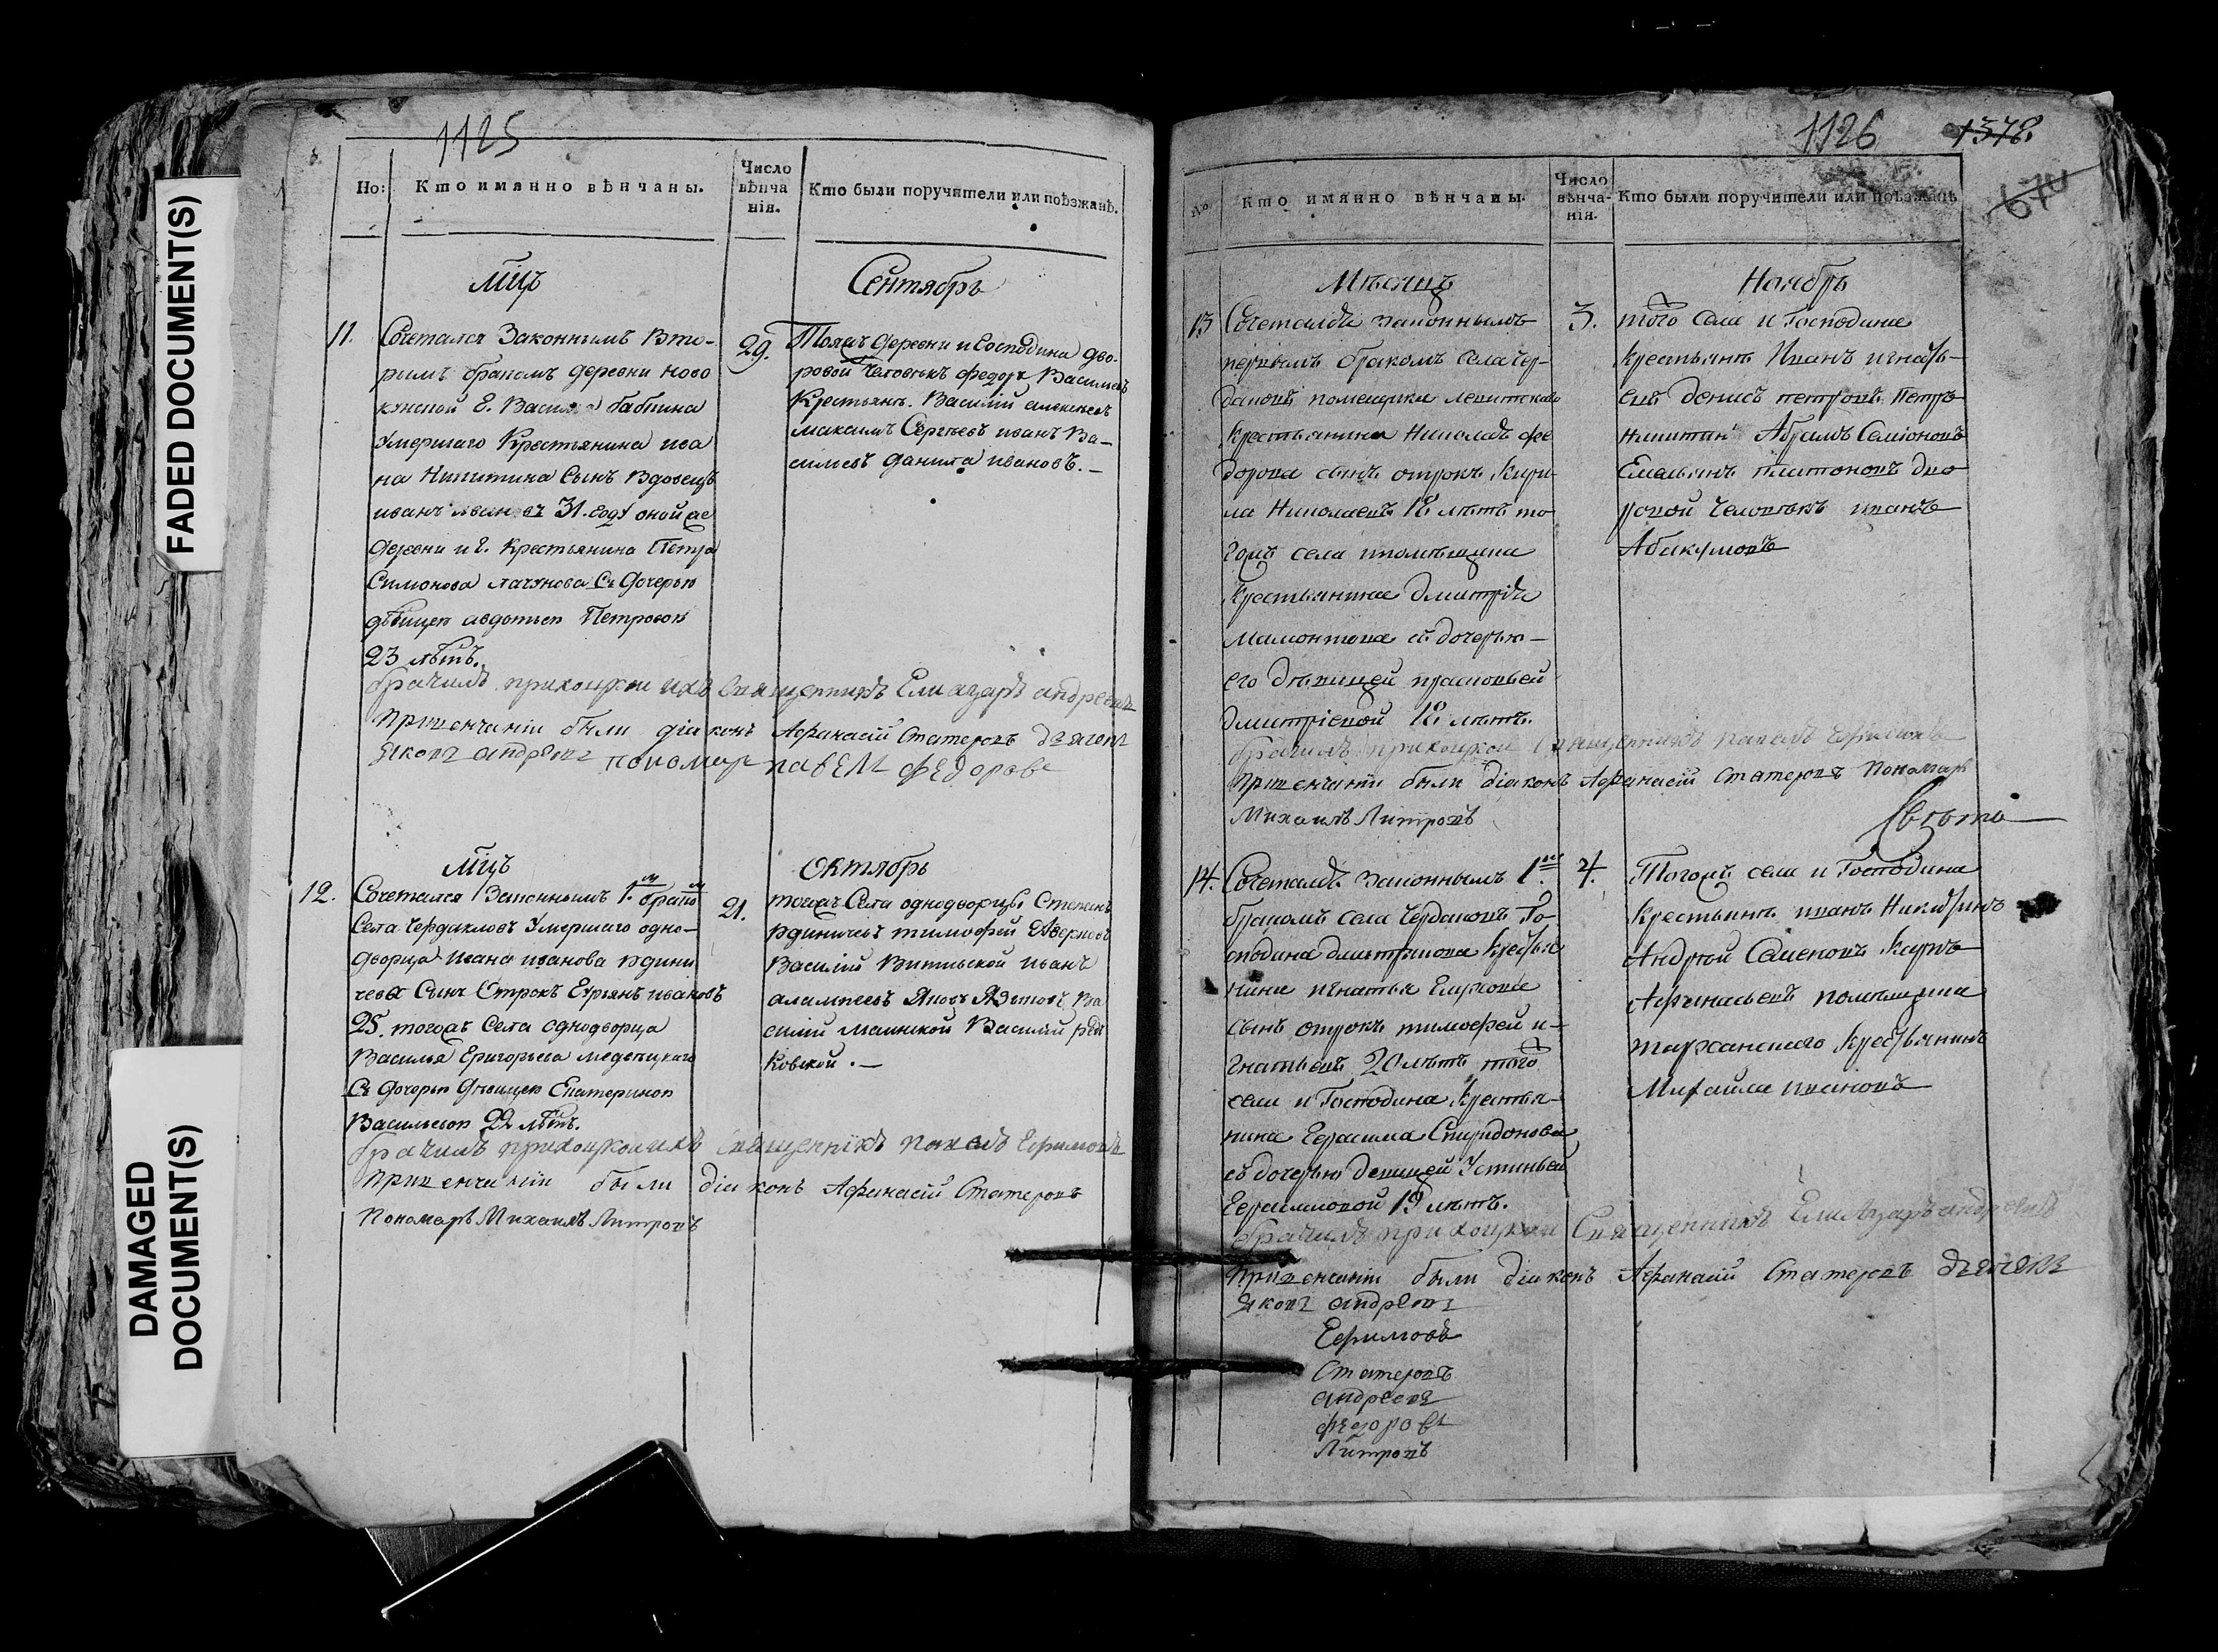 FADED DOCUMENT(S)
DAMAGED
DOCUMENT(S)
1125
Но:
Кто имянно вѣнчаны.
Число
вѣнча
нія.
Кто были поручители или поѣзжанѣ.
Мцъ
Сентябрь
11.
Сочетался Законнымъ Вто-
рымъ бракомъ деревни ново
Бабкина
умершаго Крестьянина ива
на Никитина Сынъ Вдовецъ
иванъ ивановъ 31. году оной же
деревни и г. Крестьянина Петра
Симонова Съ дочерью
девицею авдотьею Петровою
23 лѣтъ.
29.
Тояжъ деревни и Господина дво-
ровой Человѣкъ федоръ Васильевъ
Крестьянъ. Василий алексеевъ
максимъ Сергѣевъ иванъ Ва-
сильевъ данила ивановъ.
бракомъ приходскои ихъ Священникъ Елиазаръ андреевъ
При венчаніи были діаконъ Афанасій Статеровъ дьячекъ
Яковъ андреевъ пономарь павелъ федоровъ
Мцъ
Октябрь
12.
Сочетался Законнымъ 1.мъ бракомъ
Села Чердакловъ Умершаго одно-
дворца Ивана иванова рдини
чева Сынъ Отрокъ ивановъ
25. тогожъ Села однодворца
Василья Григорьева
Съ дочерью дѣвицею Екатериною
Васильевою 22 лѣтъ.
21.
тогожъ Села однодворцы Степанъ
рдиничевъ тимофей
Василий иванъ
Яковъ Ва
силий Василий
ковской.
бракомъ приходскои ихъ Священникъ павелъ Ефимовъ
При венчаніи были діаконъ Афанасій Статеровъ
Пономарь Михаилъ Литровъ
1126
1378.
670
No
Кто имянно вѣнчаны.
Число
вѣнча-
нія.
Кто были поручители или поѣзжанѣ
Мѣсяцъ
Ноябрь
13
Сочетался законнымъ
первымъ бракомъ Села Чер-
помещика
Крестьянина Николая Фе
дорова сынъ отрокъ Кири-
ла Николаевъ 18 лѣтъ то
гожъ села помѣщика
Крестьянина Дмитрія
Мамонтова съ дочерью
его дѣвицей прасковьей
Дмитріевой 18 лѣтъ.
3.
того Села и Господина
Крестьянъ Иванъ игнать-
евъ Денисъ петровъ Петръ
никитинъ Абрамъ Семіоновъ
Емельянъ платоновъ дво
ровой Человѣкъ иванъ
Абакумовъ
бракомъ приходской Священникъ павелъ Ефимовъ
При венчаніи были діаконъ Афанасій Статеровъ Пономарь
Михаилъ Литровъ
14.
Сочетался законнымъ 1мъ
бракомъ села Чердаковъ Го-
сподина дмитриева Крестья
нина игнатья
сынъ отрокъ тимофей и-
гнатьевъ 20 лѣтъ того
села и Господина Крестья-
нина Герасима Спиридонова
съ дочерью девицей Устиньей
Герасимовой 19 лѣтъ.
4.
Тогожъ села и Господина
Крестьянъ иванъ
Андрей Семеновъ Карпъ
Афанасьевъ помѣщика
Крестьянинъ
Михайла ивановъ
бракомъ приходской Священникъ Елиазаръ андреевъ
При венчаніи были діаконъ Афанасій Статеровъ дьячекъ
Яковъ андреевъ
Ефимовъ
Статеровъ
андреевъ
федоровъ
Литровъ